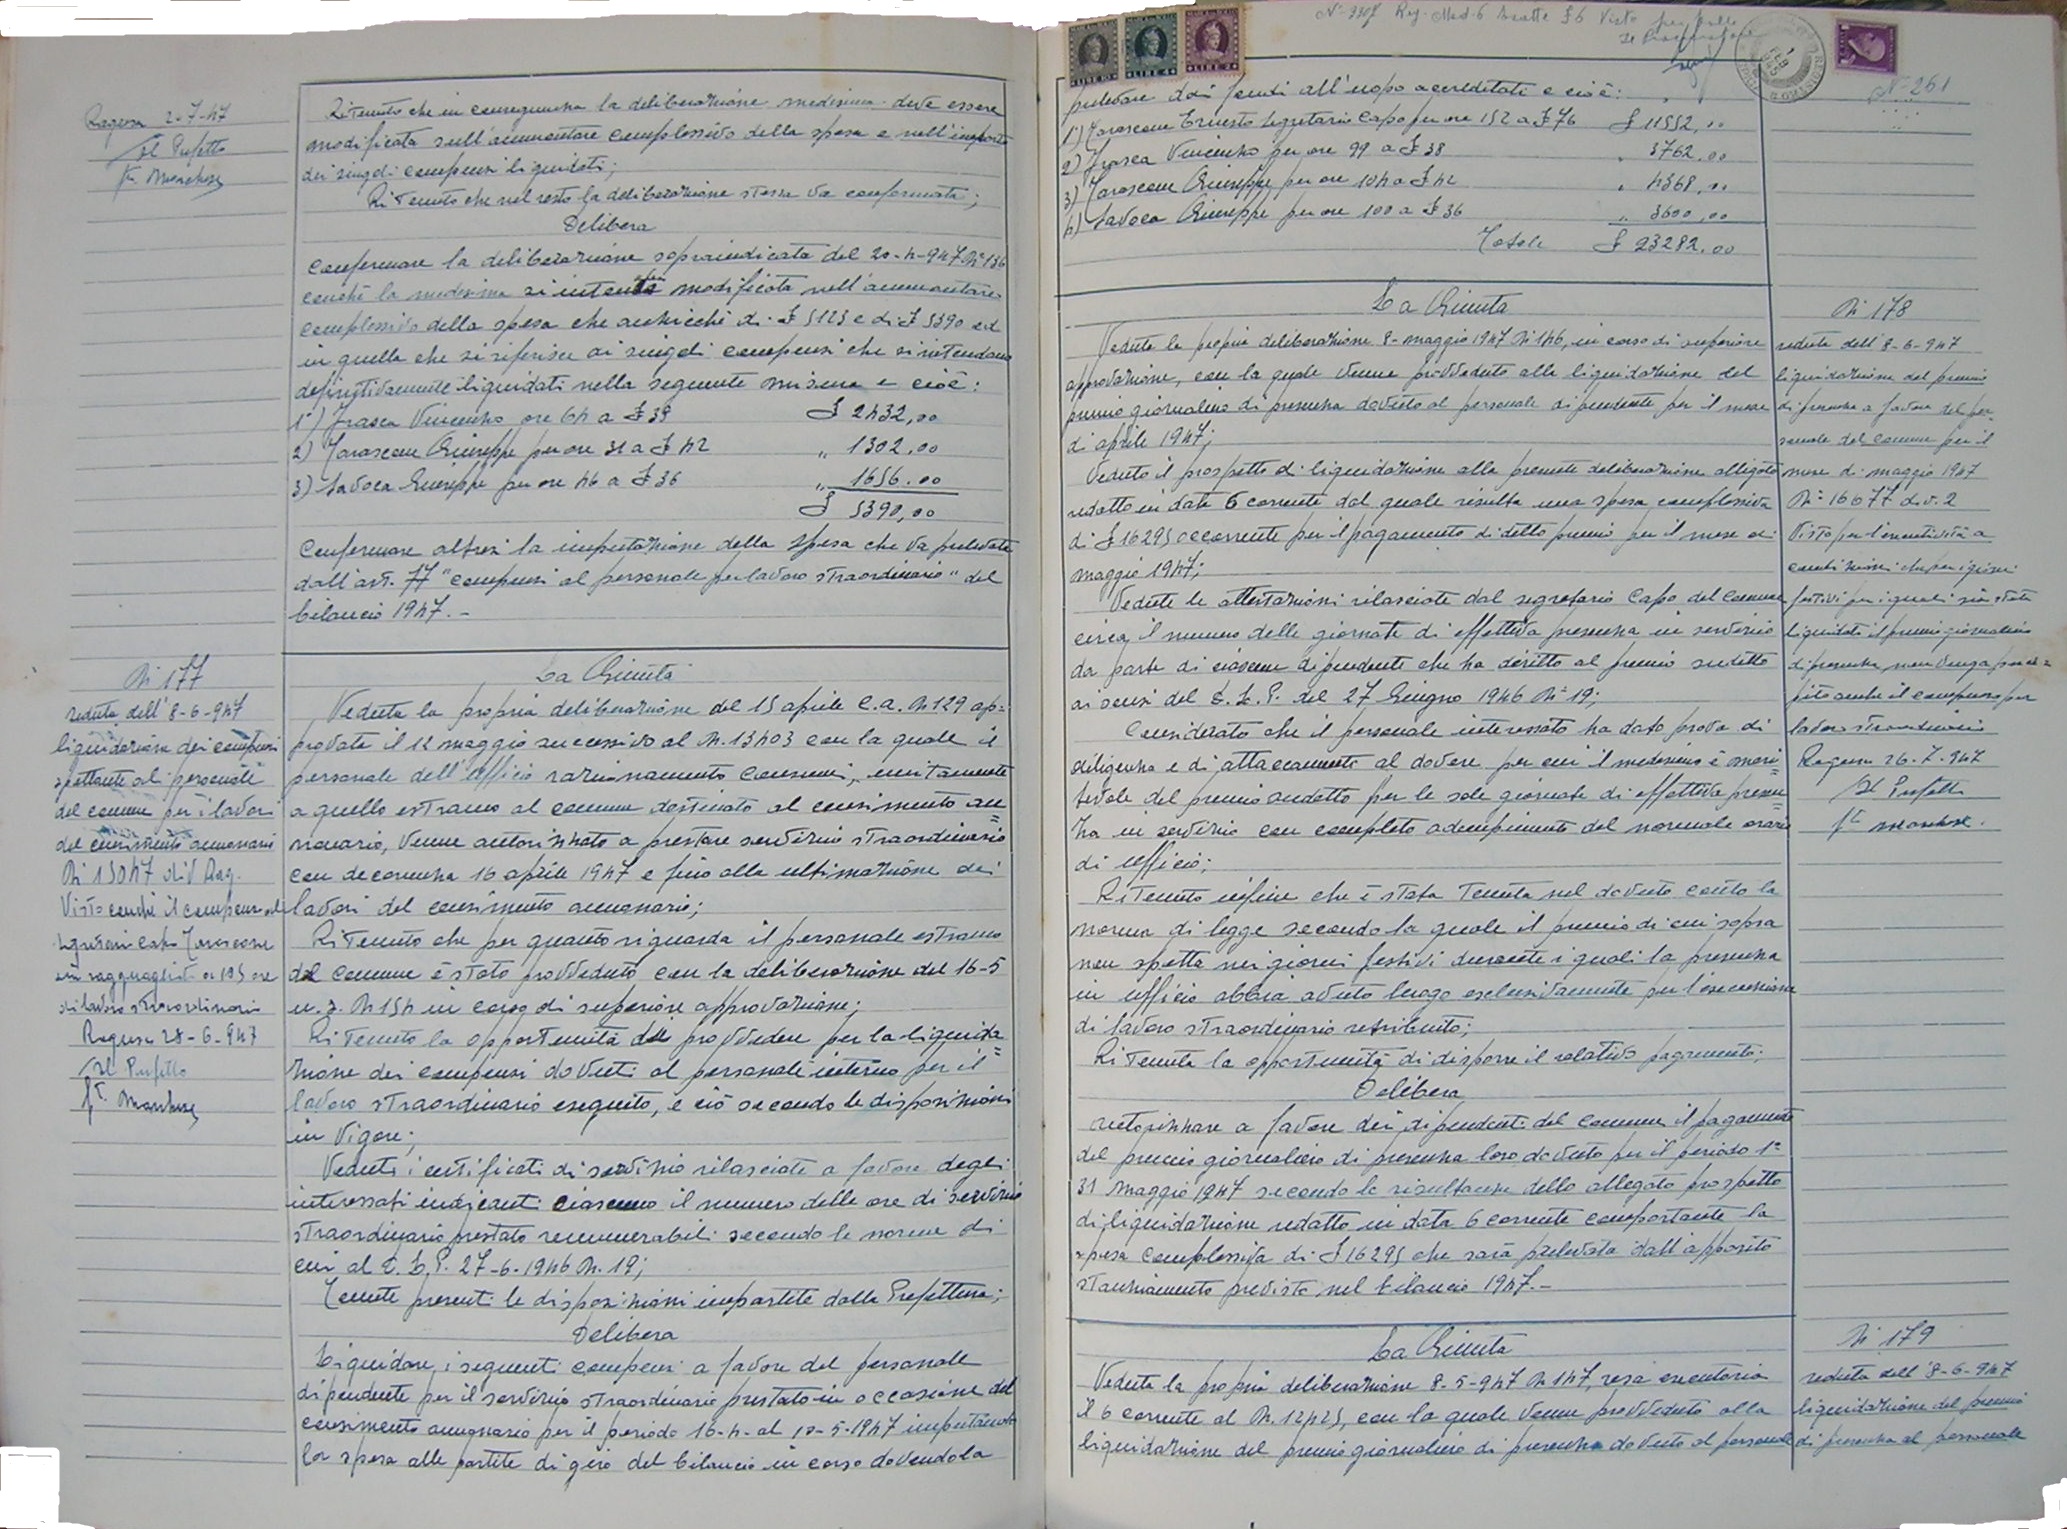 Ragusa 2-7-47
Il Prefetto
Ritenuto che in conseguenza la deliberazione medesima deve essere
modificata sull'ammontare complessivo della spesa e nell'importo
dei singoli compensi liquidati;
Ritenuto che nel resto la deliberazione stessa va confermata;
Delibera
Confermare la deliberazione sopraindicata del 20-4-947 N° 136
cosichè la medesima si intende modificata nell'ammontare
complessivo della spesa che anzicchè di £ 5123 è di £ 5390 ed
in quella che si riferisce ai singoli compensi che si intendono
definitivamente liquidati nella seguente misura e cioè:
1°) Frasca Vincenzo ore 64 a £ 38 £ 2432,00
2) Tarascone Giuseppe per ore 31 a £ 42 „ 1302,00
3) Savoca Giuseppe per ore 46 a £ 36 „ 1656,00
£ 5390,00
Confermare altresì la imputazione della spesa che va prelevata
dall'art. 77 "compensi al personale per lavoro straordinario" del
bilancio 1947.-
N 177
seduta dell'8-6-947
liquidazione dei compensi
spettante al personale
del comune per i lavori
del censimento annonario
N 15047 div Rag.
Visto
Segretario Capo Tarascone
sia ragguagliato a 195 ore
di lavoro straordinario
Ragusa 28-6-947
Il Prefetto
La Giunta
Veduta la propria deliberazione del 15 aprile c.a. N 129 ap=
provata il 12 maggio successivo al N. 13403 con la quale il
personale dell'ufficio razionamento consumi, unitamente
a quello estraneo al comune destinato al censimento an=
nonario, venne autorizzato a prestare servizio straordinario
con decorrenza 16 aprile 1947 e fino alla ultimazione dei
lavori del censimento annonario;
Ritenuto che per quanto riguarda il personale estraneo
al comune è stato provveduto con la deliberazione del 16-5
u.s. N 154 in corso di superiore approvazione;
Ritenuto la opportunità di provvedere per la liquida=
zione dei compensi dovuti al personale interno per il
lavoro straordinario eseguito, e ciò secondo le disposizioni
in vigore;
Veduti i certificati di servizio rilasciate a favore degli
interessati indicanti ciascuno il numero delle ore di servizio
straordinario prestato remunerabili secondo le norme di
cui al D.L.P. 27-6-1946 N. 19;
Tenute presenti le disposizioni impartite dalla Prefettura;
Delibera
Liquidare i seguenti compensi a favore del personale
dipendente per il servizio straordinario prestato in occasione del
censimento annonario per il periodo 16-4- al 10-5-1947 imputando
la spesa alle partite di giro del bilancio in corso dovendola
N° 3307 Reg. Mod. 6 Visto per bollo
Il Procuratore
N- 261
prelevare dai fondi all'uopo accreditati e cioè:
1°) Tarascone Ernesto Segretario Capo per ore 152 a £ 76 £ 11552,00
2) Frasca Vincenzo per ore 99 a £ 38 „ 3762,00
3) Tarascone Giuseppe per ore 104 a £ 42 „ 4368,00
4) Savoca Giuseppe per ore 100 a £ 36 „ 3600,00
Totale £ 23282,00
La Giunta
Veduta la propria deliberazione 8-maggio 1947 N 146, in corso di superiore
approvazione, con la quale venne provveduto alla liquidazione del
premio giornaliero di presenza dovuto al personale dipendente per il mese
di aprile 1947;
Veduto il prospetto di liquidazione alla presente deliberazione allegato
redatto in data 6 corrente dal quale risulta una spesa complessiva
di £ 16295 occorrente per il pagamento di detto premio per il mese di
maggio 1947;
Vedute le attestazioni rilasciate dal segretario Capo del Comune
circa il numero delle giornate di effettiva presenza in servizio
da parte di ciascun dipendente che ha diritto al premio sudetto
ai sensi del D.L.P. del 27 Giugno 1946 N° 19;
Considerato che il personale interessato ha dato prova di
diligenza e di attaccamento al dovere per cui il medesimo è meri=
tevole del premio sudetto per le sole giornate di effettiva presen=
za in servizio con completo adempimento del normale orario
di ufficio;
Ritenuto infine che è stata tenuta nel dovuto conto la
norma di legge secondo la quale il premio di cui sopra
non spetta nei giorni festivi durante i quali la presenza
in ufficio abbia avuto luogo esclusivamente per l'esecuzione
di lavoro straordinario retribuito;
Ritenuta la opportunità di disporre il relativo pagamento;
Delibera
Autorizzare a favore dei dipendenti del comune il pagamento
del premio giornaliero di presenza loro dovuto per il periodo 1°
31 maggio 1947 secondo le risultanze dello allegato prospetto
di liquidazione redatto in data 6 corrente comportante la
spesa complessiva di £ 16295 che sarà prelevata dall'apposito
stanziamento previsto nel bilancio 1947.-
N 178
seduta dell'8-6-947
liquidazione del premio
di presenza a favore del per-
sonale del comune per il
mese di maggio 1947
N° 16677 div. 2
Visto per l'esecutività a
condizioni che per i giorni
festivi per i quali sia stato
liquidato il premio giornaliero
di presenza, non venga perce=
pito anche il compenso per
lavoro straordinario
Ragusa 26-7-947
Il Prefetto
La Giunta
Veduta la propria deliberazione 8-5-947 N 147, resa esecutoria
il 6 corrente al N. 12425, con la quale venne provveduto alla
liquidazione del premio giornaliero di presenza dovuto al personale
N 179
seduta dell'8-6-947
liquidazione del premio
di presenza al personale